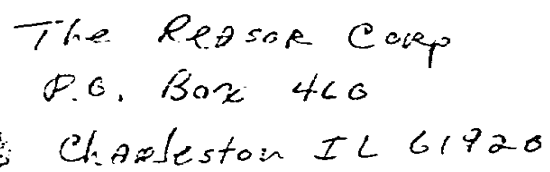 The Reasor Corp
P.O. Box 460
Charleston IL 61920